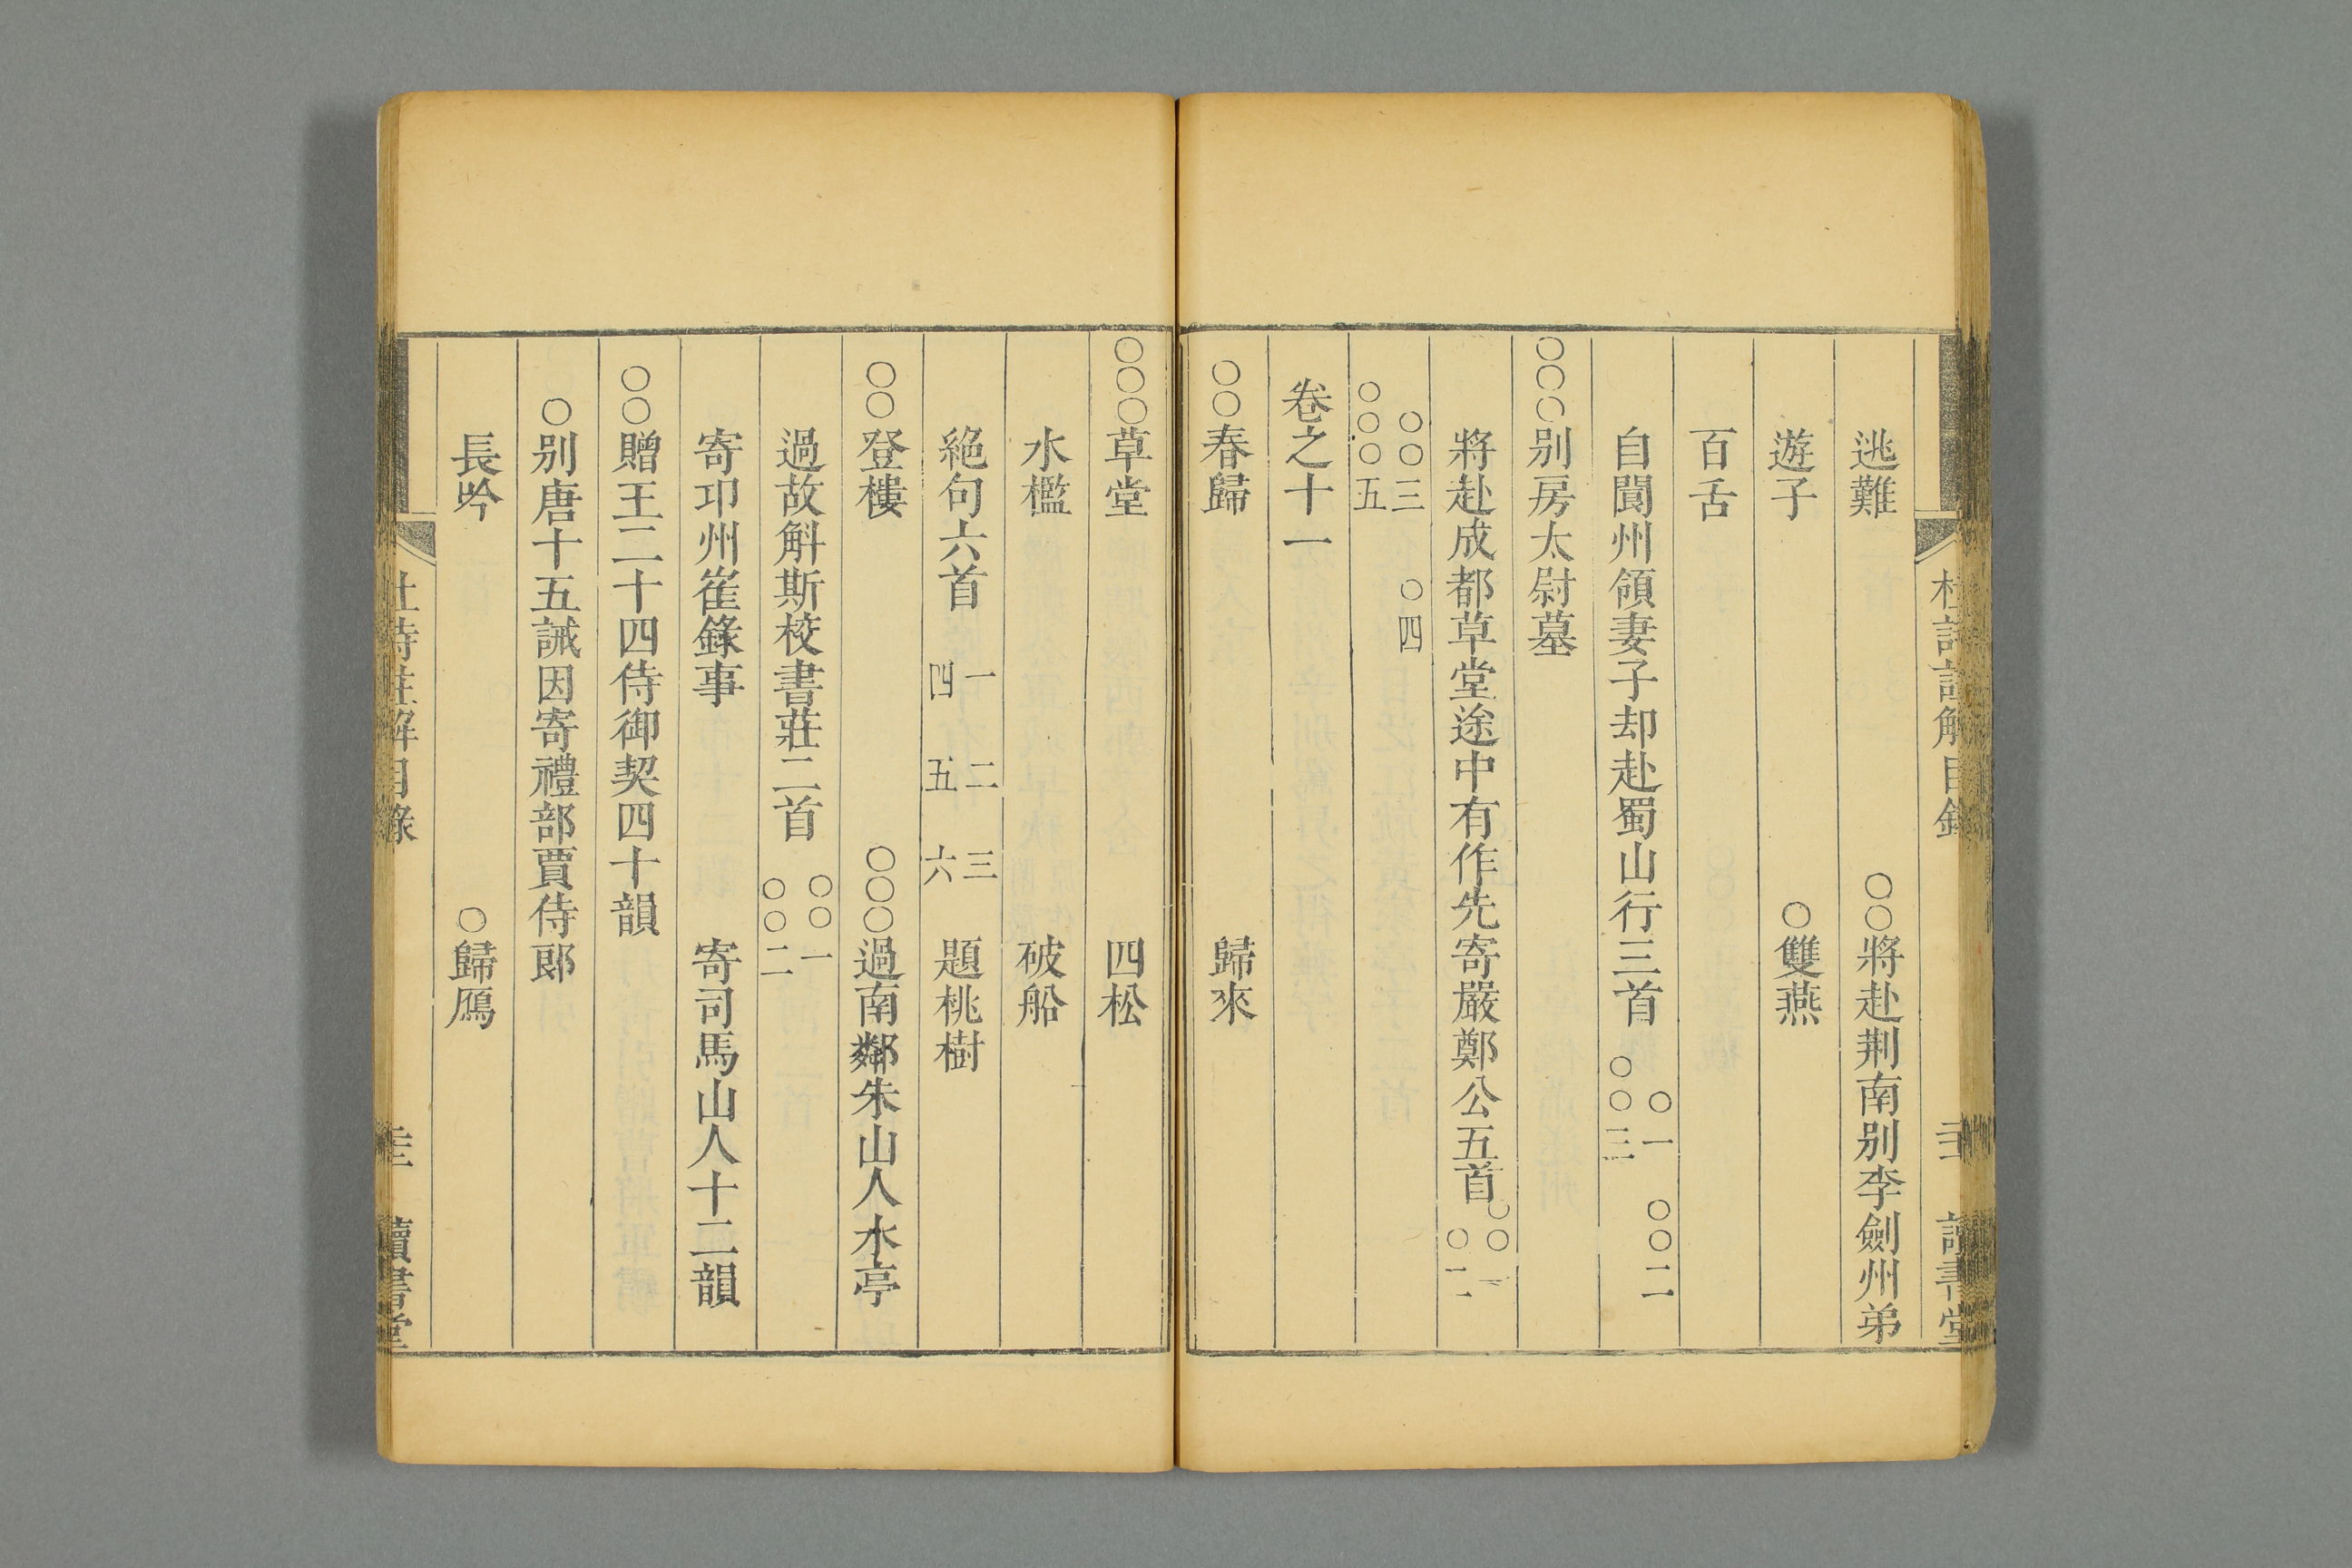 杜詩註解目錄 讀書堂
逃難 ○○將赴荆南別李劍州弟
遊子 ○雙燕
百舌
自閬州領妻子却赴蜀山行三首 ○一 ○○二 ○○三
○○○別房太尉墓
將赴成都草堂途中有作先寄嚴鄭公五首 ○○一 ○二
○○三 ○四 ○○○五
卷之十一
○○春歸 歸來
○○○草堂 四松
水檻 破船
絶句六首 一 二 三 四 五 六 題桃樹
○○登樓 ○○○過南鄰朱山人水亭
過故斛斯校書莊二首 ○○一 ○○二
寄邛州崔錄事 寄司馬山人十二韻
○○贈王二十四侍御契四十韻
○別唐十五誡因寄禮部賈侍郎
長吟 ○歸鴈
杜詩註解目錄 讀書堂